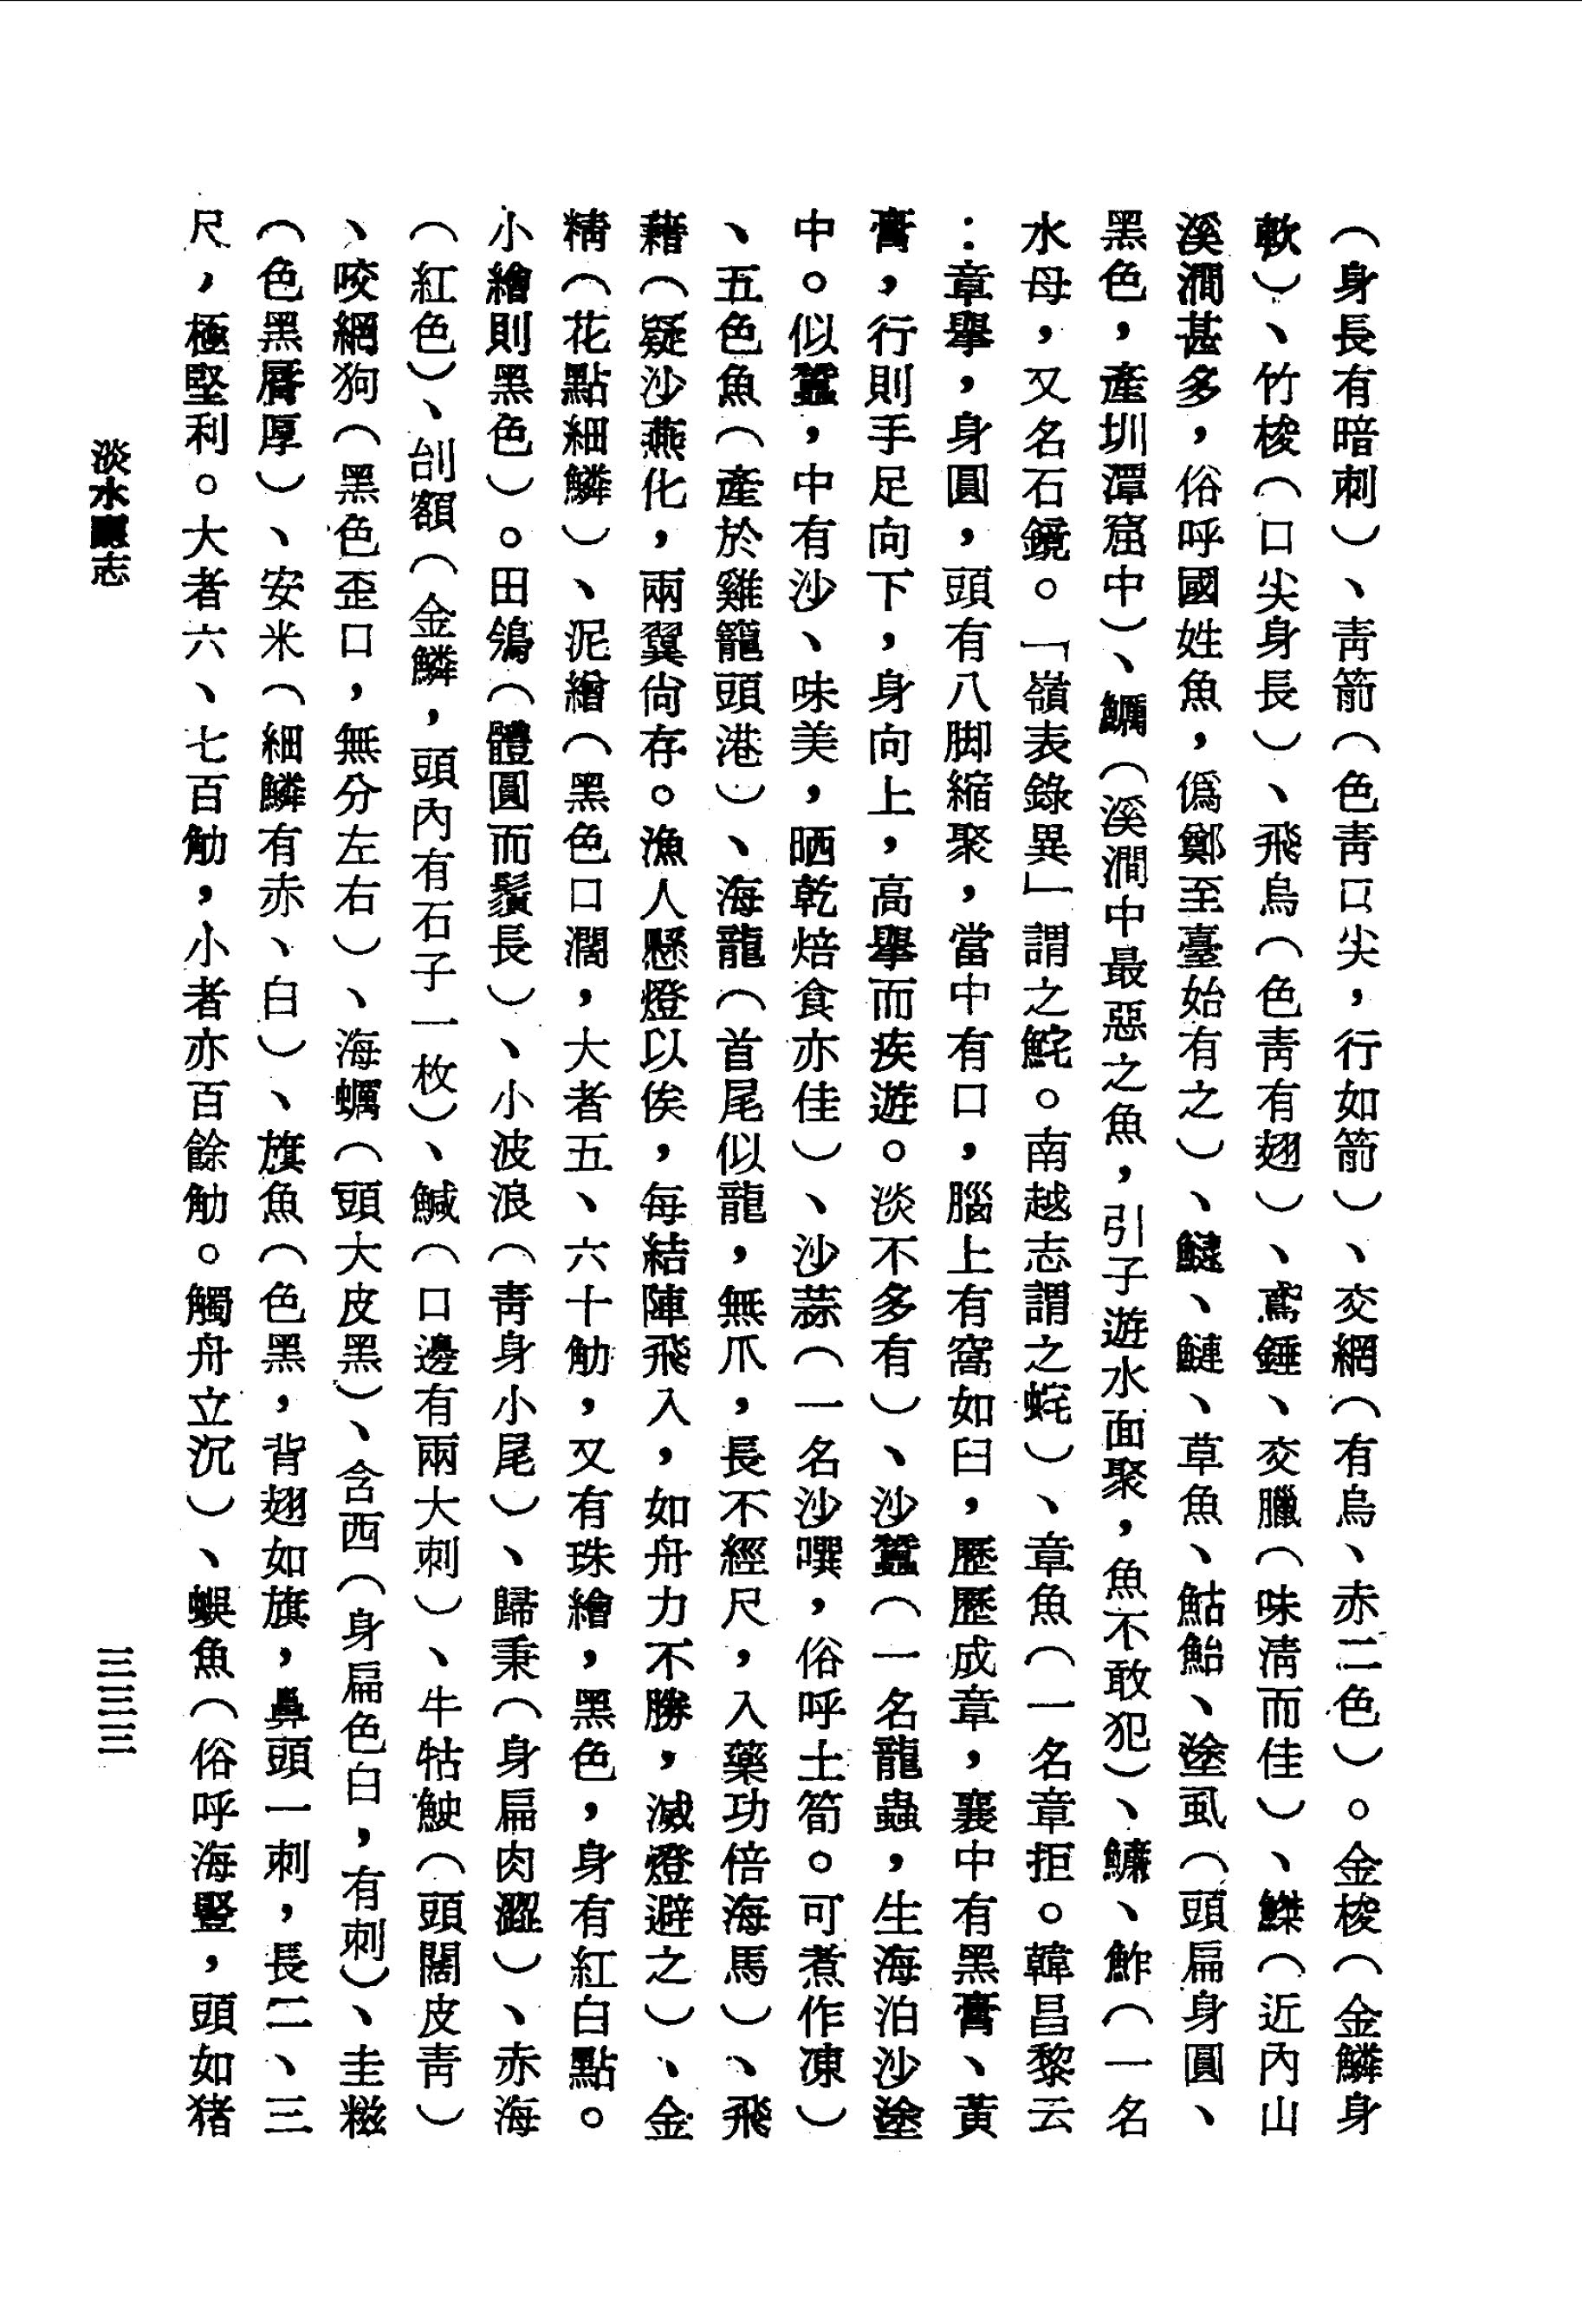 （身長有暗刺）、靑箭（色靑口尖，行如箭）、交網（有烏、赤二色）。金梭（金鱗身
軟）、竹梭（口尖身長）、飛烏（色靑有翅）、鳶錘、交臘（味淸而佳）、鰶（近內山
溪澗甚多，俗呼國姓魚，僞鄭至臺始有之）、鰱、鰱、草魚、鮕鮐、塗虱（頭扁身圓、
黑色，產圳潭窟中）、鱺（溪澗中最惡之魚，引子遊水面聚，魚不敢犯）、鱇、鮓（一名
水母，又名石鏡。「嶺表錄異」謂之鮀。南越志謂之蛯）、章魚（一名章拒。韓昌黎云
：章擧，身圓，頭有八脚縮聚，當中有口，腦上有窩如臼，歷歷成章，襄中有黑膏、黃
膏，行則手足向下，身向上，高擧而疾遊。淡不多有）、沙蠶（一名龍蟲，生海泊沙塗
中。似蠶，中有沙、味美，晒乾焙食亦佳）、沙蒜（一名沙噀，俗呼土筍。可煮作凍）
、五色魚（產於雞籠頭港）、海龍（首尾似龍，無爪，長不經尺，入藥功倍海馬）、飛
藉（疑沙燕化，兩翼尙存。漁人懸燈以俟，每結陣飛入，如舟力不勝，滅燈避之）、金
精（花點細鱗）、泥繪（黑色口濶，大者五、六十觔，又有珠繪，黑色，身有紅白點。
小繪則黑色）。田鴒（體圓而鬚長）、小波浪（靑身小尾）、歸秉（身扁肉澀）、赤海
（紅色）、刣額（金鱗，頭內有石子一枚）、鰔（口邊有兩大刺）、牛牯䱌（頭闊皮靑）
、咬網狗（黑色歪口，無分左右）、海蠣（頭大皮黑）、含西（身扁色白，有刺）、圭糍
（色黑脣厚）、安米（細鱗有赤、白）、旗魚（色黑，背翅如旗，鼻頭一刺，長二、三
尺，極堅利。大者六、七百觔，小者亦百餘觔。觸舟立沉）、蜈魚（俗呼海豎，頭如猪
淡水廳志
三三三